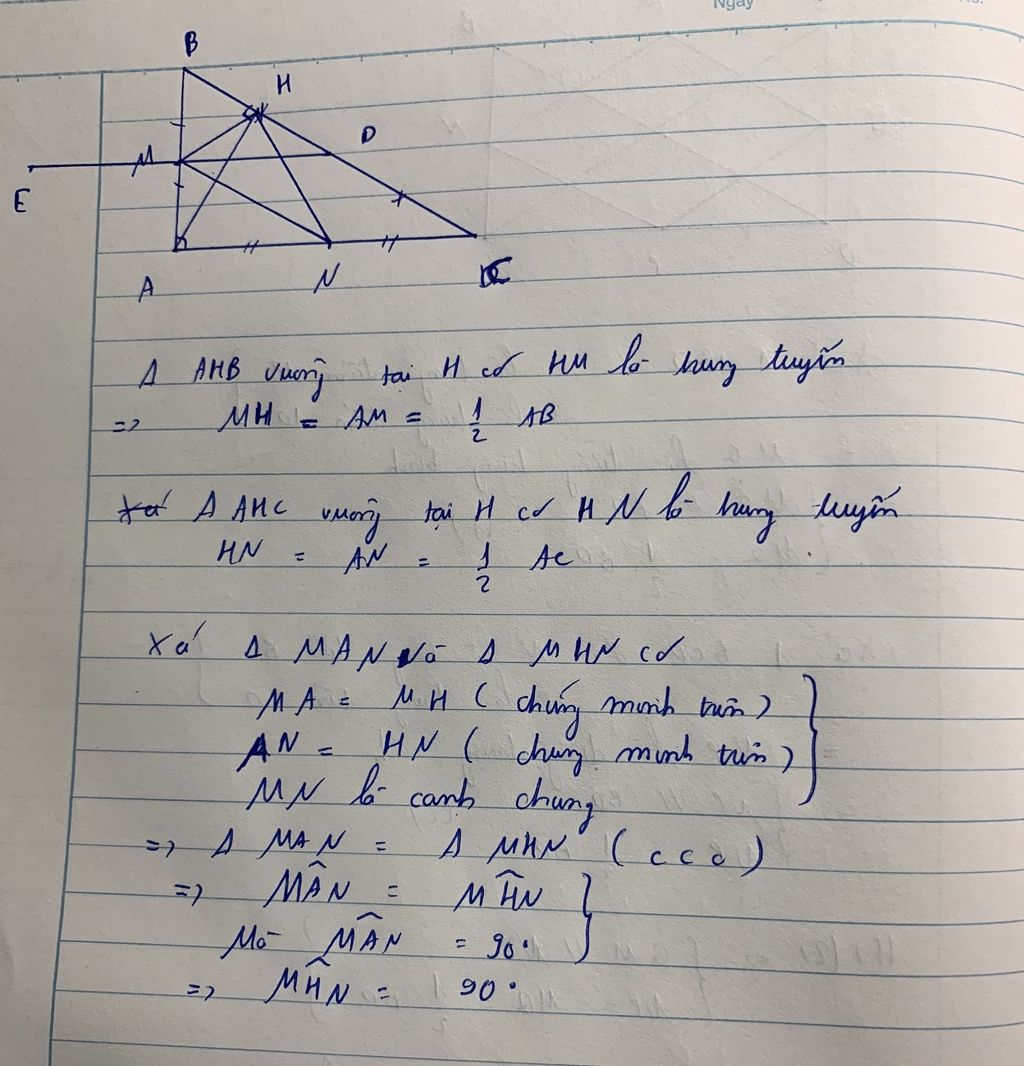 Ngày
B
H
D
M
E
A
N
C
Δ AHB vuông tại H có HM là trung tuyến
=> MH = AM = 1/2 AB
Xét Δ AHC vuông tại H có HN là trung tuyến
HN = AN = 1/2 AC
Xét Δ MAN và Δ MHN có
MA = MH ( chứng minh trên )
AN = HN ( chứng minh trên )
MN là cạnh chung
=> Δ MAN = Δ MHN ( c c c )
=> MÂN = MĤN
Mà MÂN = 90°
=> MĤN = 90°